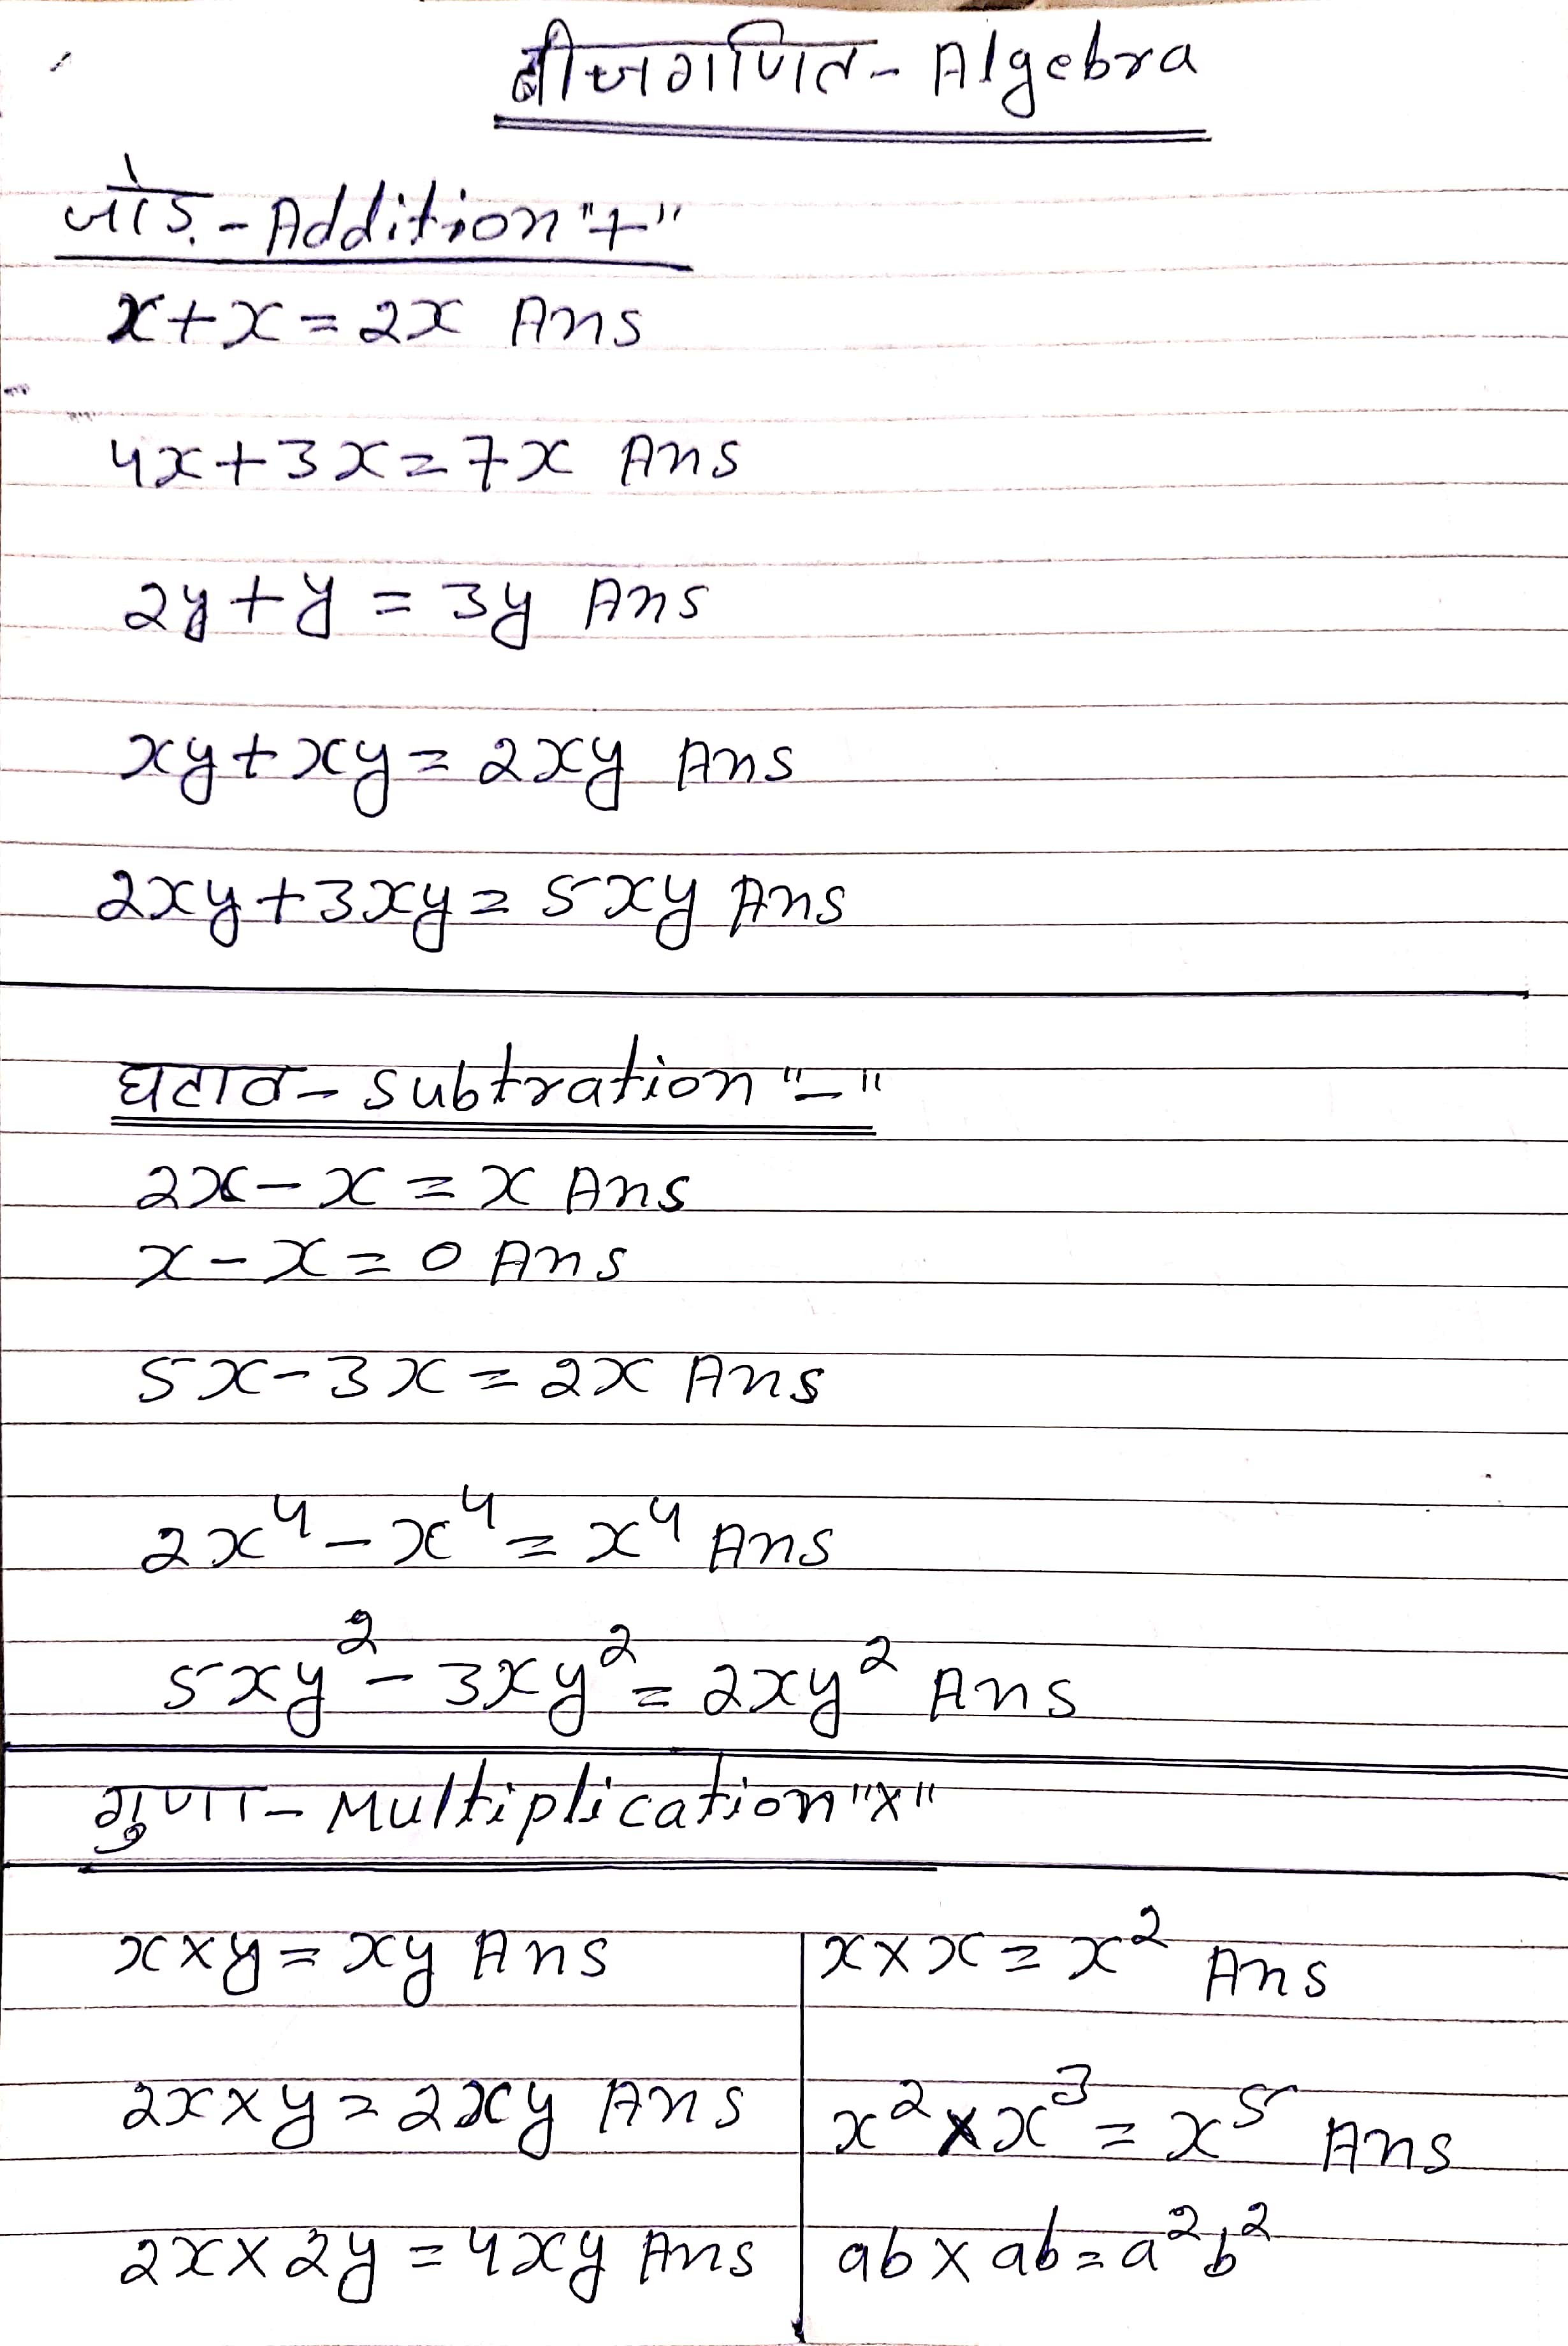 बीजगणित- Algebra
जोड़ - Addition "+"
x+x=2x Ans
4x+3x=7x Ans
2y+y=3y Ans
xy+xy=2xy Ans
2xy+3xy=5xy Ans
घटाव- subtration "-"
2x-x=x Ans
x-x=0 Ans
5x-3x=2x Ans
2x⁴-x⁴=x⁴ Ans
5xy²-3xy²=2xy² Ans
गुणा- Multiplication "x"
x×y=xy Ans
2x×y=2xy Ans
2x×2y=4xy Ans
x×x=x² Ans
x²×x³=x⁵ Ans
ab×ab=a²b²